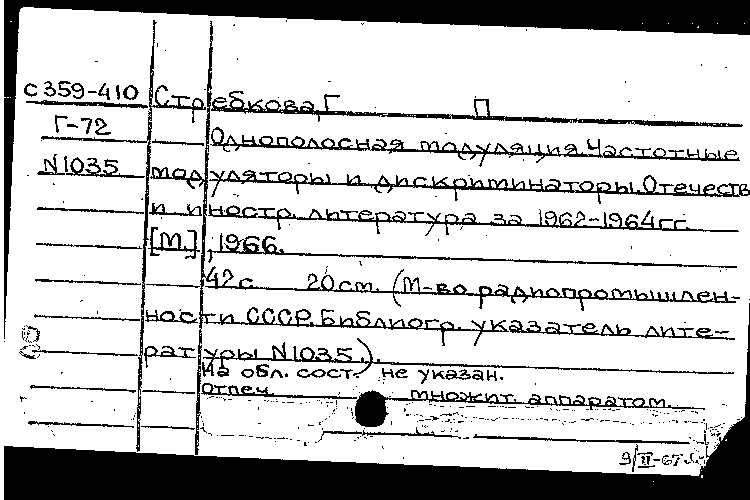 с359-410 Стребкова, Г П
Г-72 Однополосная модуляция. Частотные
N1035 модуляторы и дискриминаторы. Отечеств
и иностр. литература за 1962-1964гг.
[М.], 1966.
42с 20см. (М-во радиопромышлен-
ности СССР. Библиогр. указатель лите-
ратуры N1035).
На обл. сост. не указан.
Отпеч. множит. аппаратом.
9/II-67